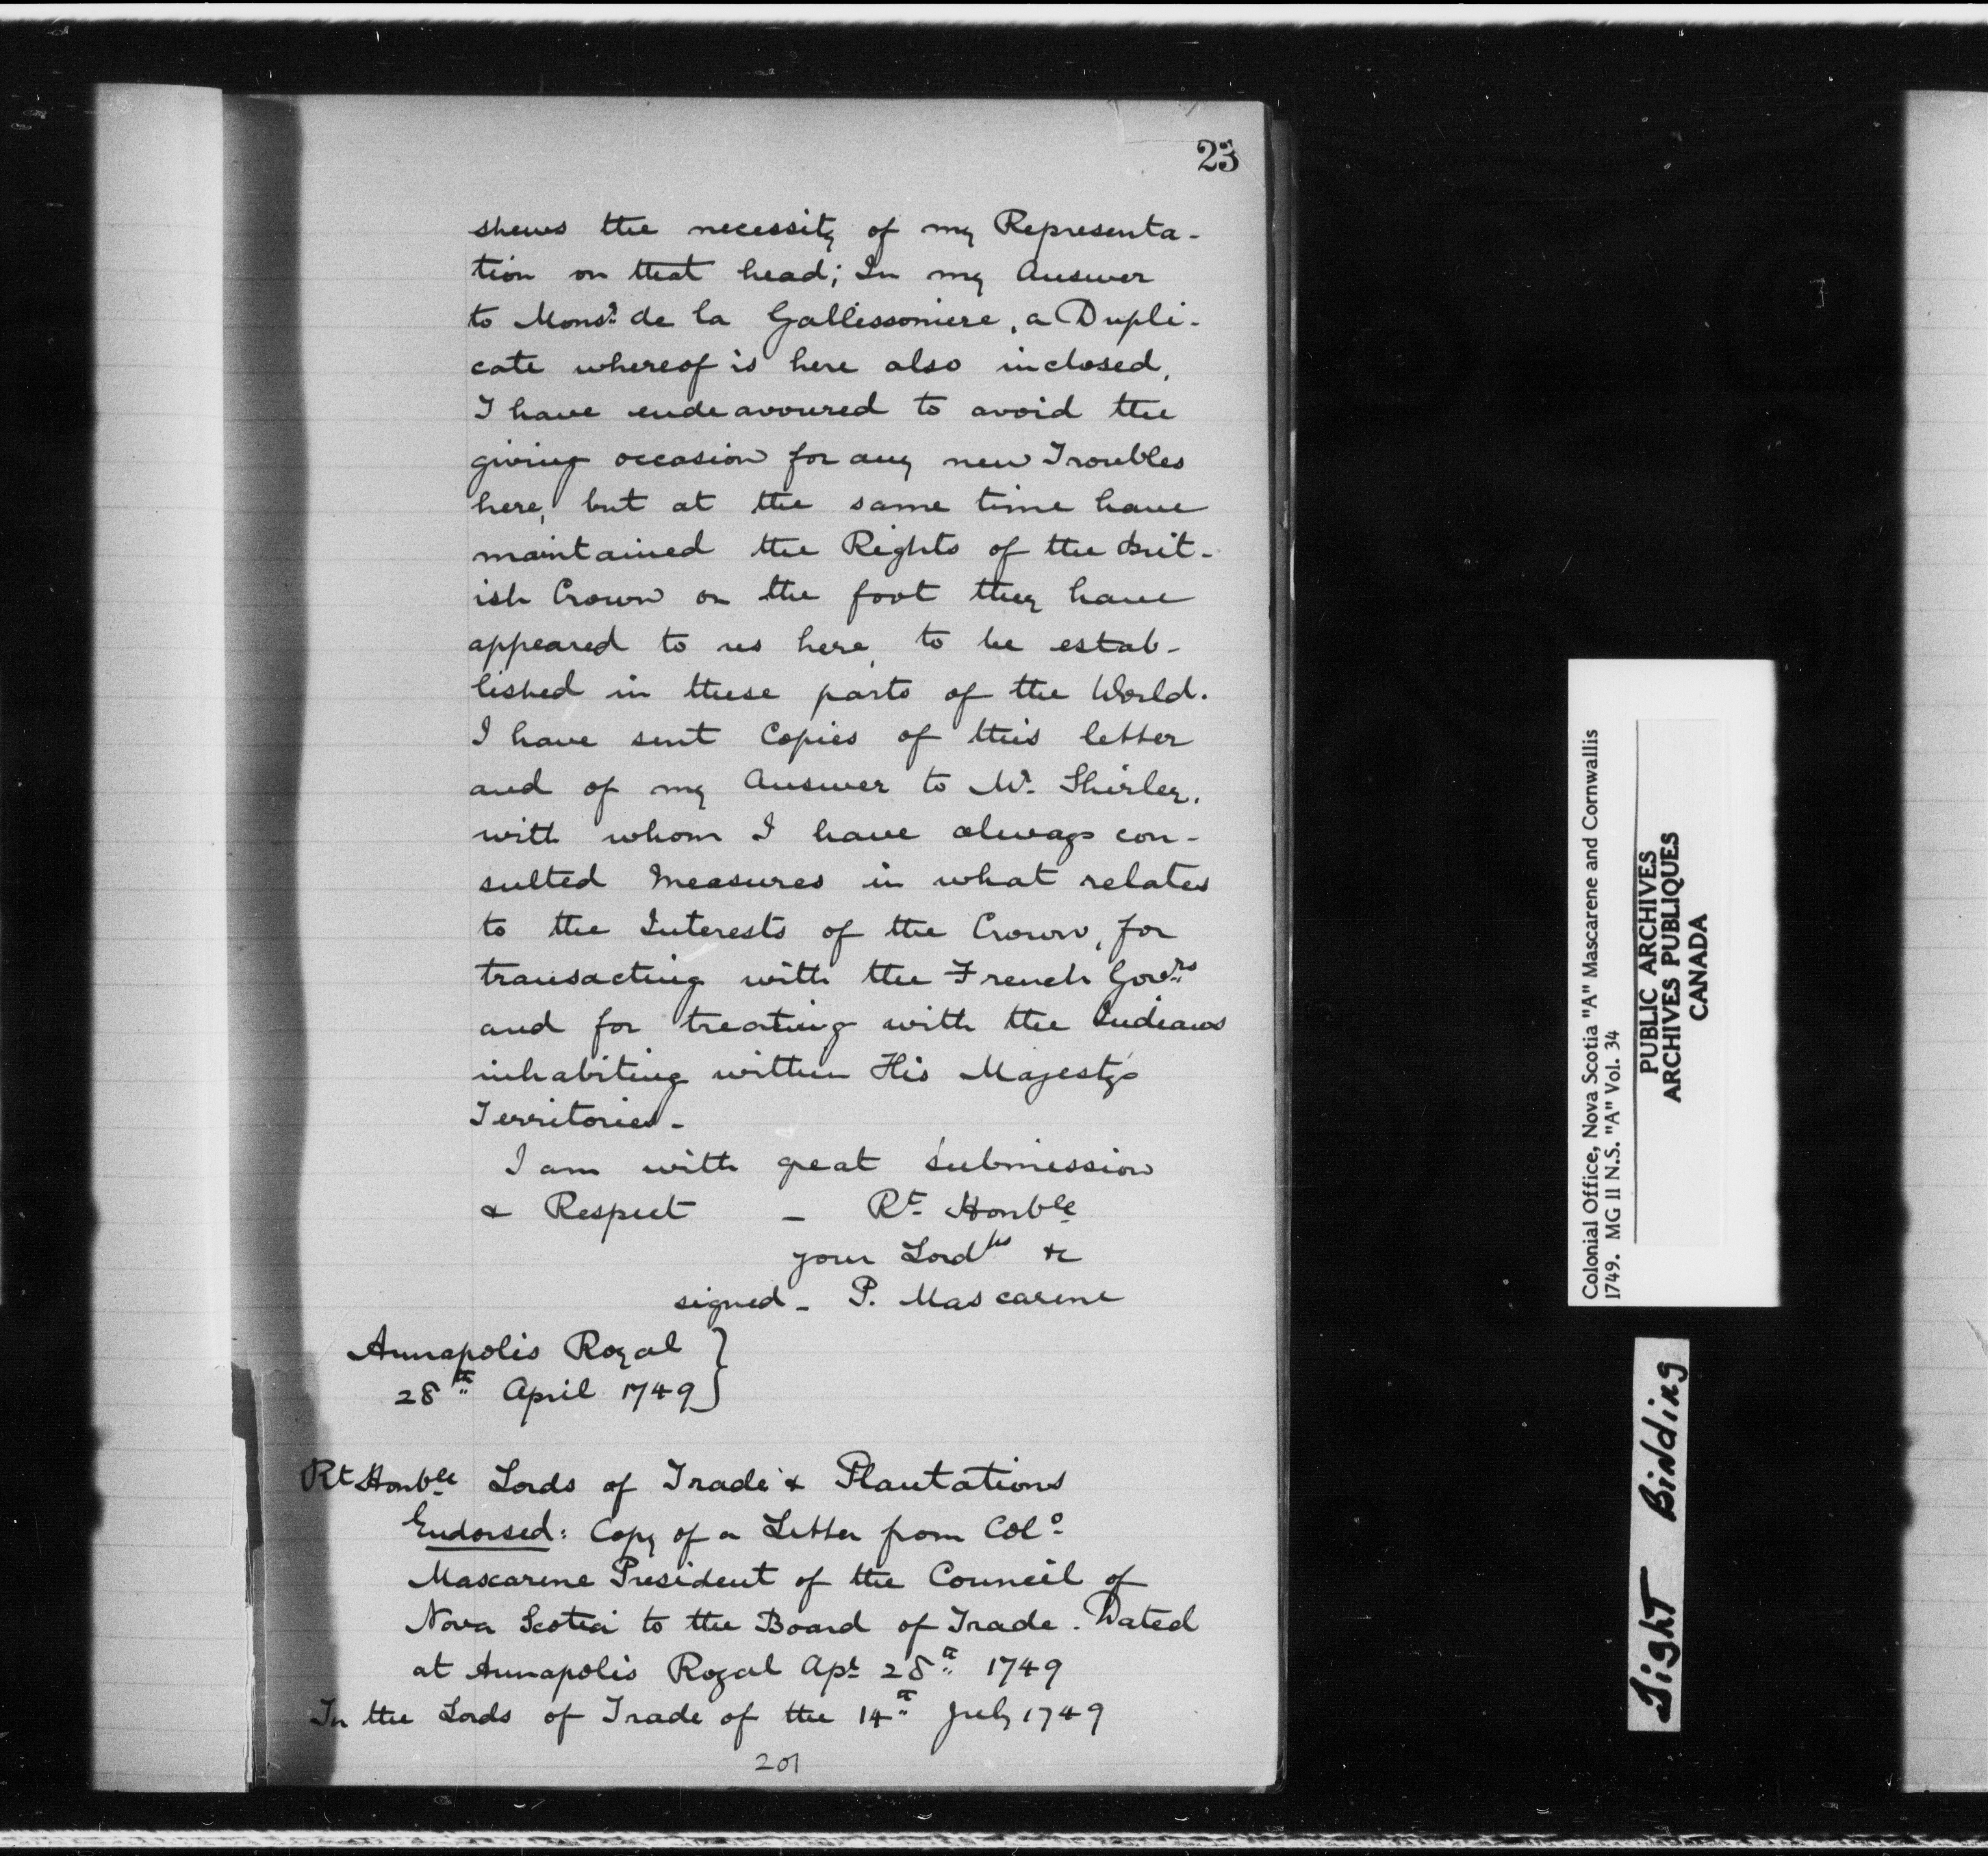 23
shews the necessity of my Representa-
tion on that head; In my Answer
to Monsr. de la Gallissoniere, a Dupli-
cate whereof is here also inclosed,
I have endeavoured to avoid the
giving occasion for any new Troubles
here, but at the same time have
maintained the Rights of the Brit-
ish Crown on the foot they have
appeared to us here, to be estab-
lished in these parts of the World.
I have sent Copies of this letter
and of my Answer to Mr. Shirley,
with whom I have always con-
sulted Measures in what relates
to the Interests of the Crown, for
transacting with the French Govrs
and for treating with the Indians
inhabiting within His Majesty's
Territories -
I am with great submission
& Respect - Rt. Honble
your Lordps &c
signed - P. Mascarene
Annapolis Royal }
28th April 1749 }
Rt Honble Lords of Trade & Plantations
Endorsed: Copy of a Letter from Colo.
Mascarene President of the Council of
Nova Scotia to the Board of Trade. Dated
at Annapolis Royal Apl 28th 1749
In the Lords of Trade of the 14th July 1749
201
Colonial Office, Nova Scotia "A" Mascarene and Cornwallis
1749. MG 11 N.S. "A" Vol. 34
PUBLIC ARCHIVES
ARCHIVES PUBLIQUES
CANADA
Tight Binding